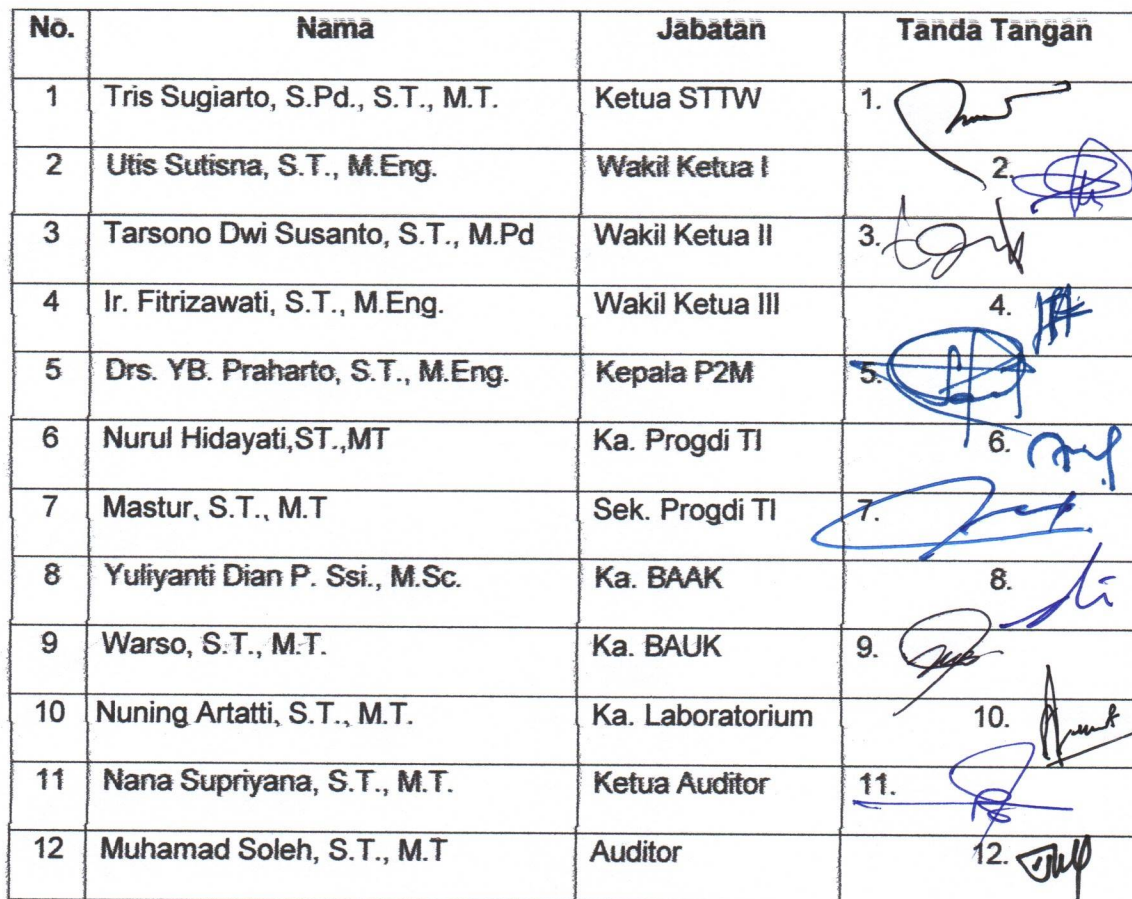 No. Nama Jabatan Tanda Tangan
1 Tris Sugiarto, S.Pd., S.T., M.T. Ketua STTW 1.
2 Utis Sutisna, S.T., M.Eng. Wakil Ketua I 2.
3 Tarsono Dwi Susanto, S.T., M.Pd Wakil Ketua II 3.
4 Ir. Fitrizawati, S.T., M.Eng. Wakil Ketua III 4.
5 Drs. YB. Praharto, S.T., M.Eng. Kepala P2M 5.
6 Nurul Hidayati,ST.,MT Ka. Progdi TI 6.
7 Mastur, S.T., M.T Sek. Progdi TI 7.
8 Yuliyanti Dian P. Ssi., M.Sc. Ka. BAAK 8.
9 Warso, S.T., M.T. Ka. BAUK 9.
10 Nuning Artatti, S.T., M.T. Ka. Laboratorium 10.
11 Nana Supriyana, S.T., M.T. Ketua Auditor 11.
12 Muhamad Soleh, S.T., M.T Auditor 12.